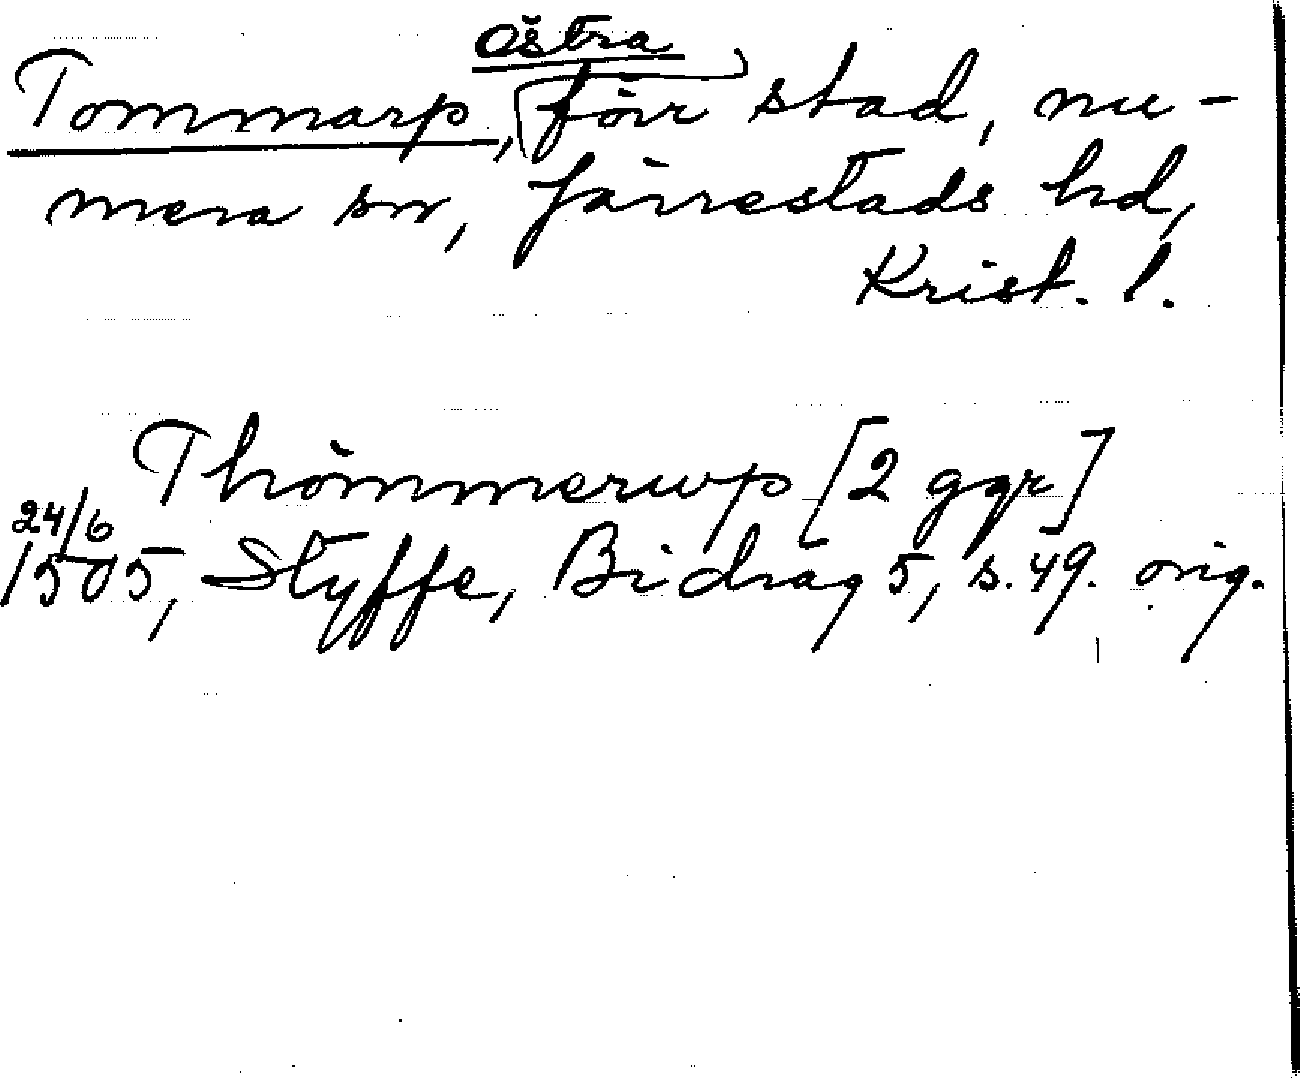 Östra
Tommarp, förr stad, nu-
mera sn, Järrestads hd,
Krist. l.
Thömmerwp [2 ggr]
24/6
1505, Styffe, Bidrag 5, s. 49. orig.